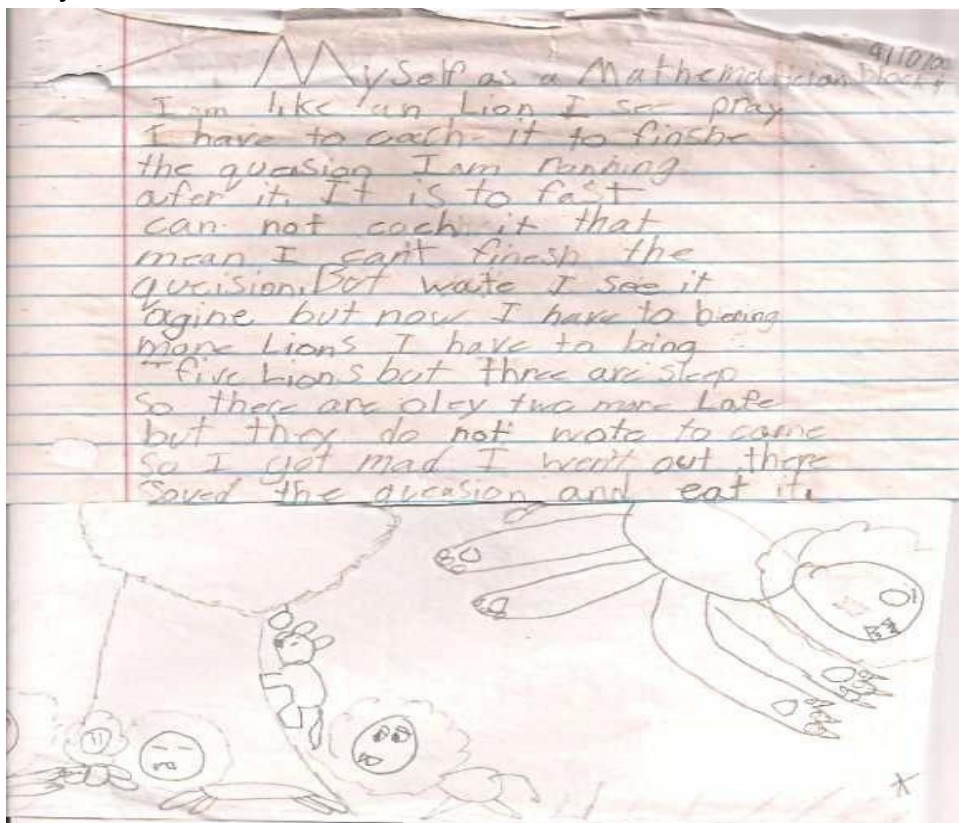 Myself as a Mathematician Block 4
I am like an Lion I see pray
I have to cach it to finshe
the queasion I am running
after it. It is to fast
can not cach it that
mean I can't finesh the
queision. But waite I see it
agine but now I have to biering
more Lions I have to bing
five Lions but three are sleep
So there are oley two more Lafe
but they do not wote to come
So I got mad I went out there
Soved the queasion and eat it.